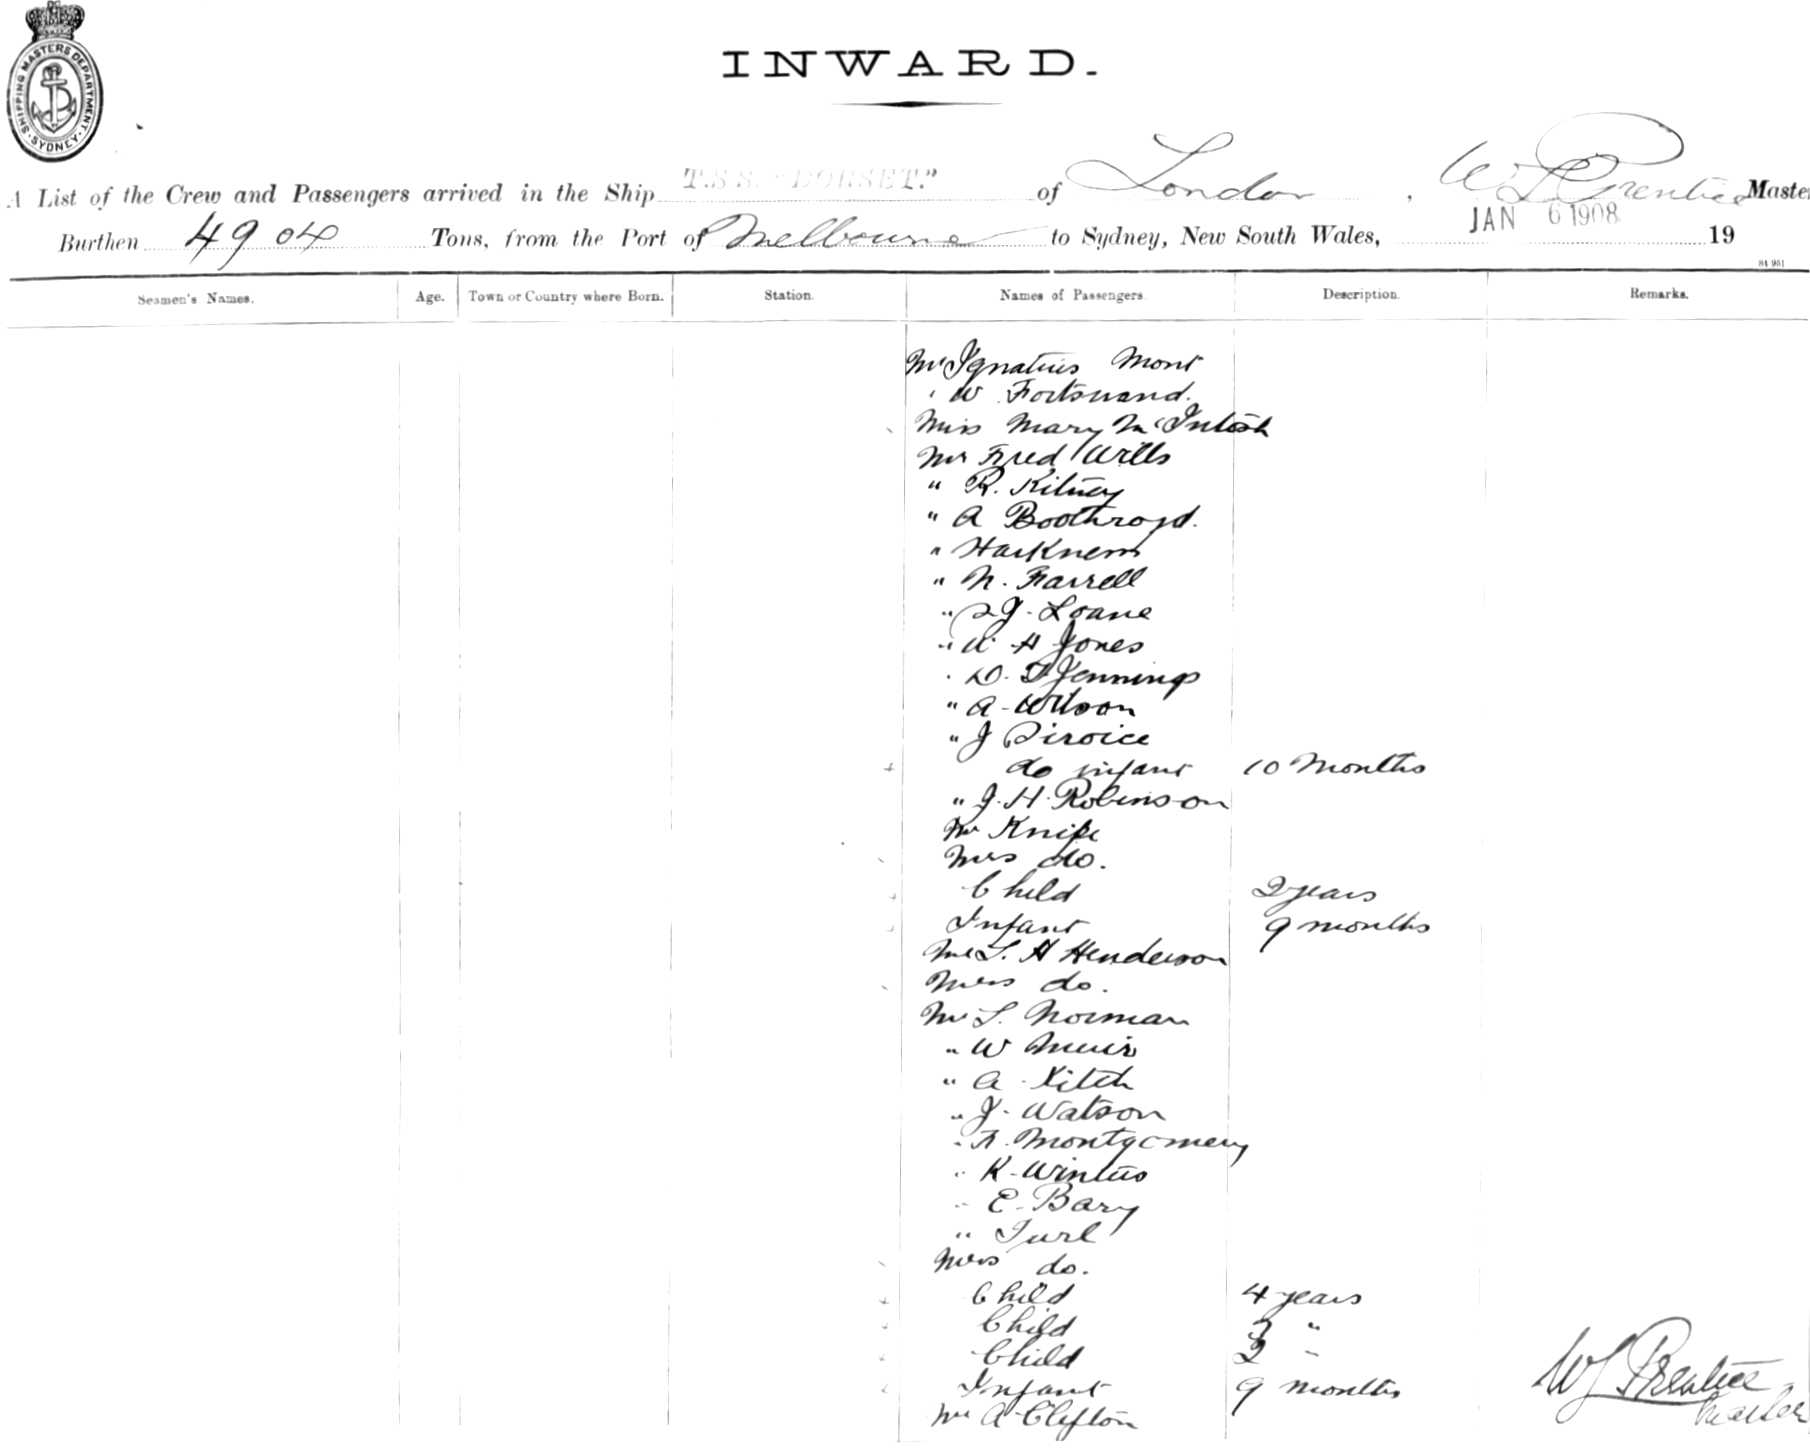 SHIPPING MASTERS DEPARTMENT · SYDNEY ·
INWARD.
A List of the Crew and Passengers arrived in the Ship T.S.S. "DORSET." of London, W L Prentice Master
Burthen 4904 Tons, from the Port of Melbourne to Sydney, New South Wales, JAN 6 1908 19
84 951
Seamen's Names. Age. Town or Country where Born. Station. Names of Passengers. Description. Remarks.
Mr Ignatius Mont
" W. Fortsnand.
Miss Mary McIntosh
Mr Fred Wills
" R. Kitney
" A Boothroyd.
" Harkness
" N. Farrell
" J. Loane
" W H Jones
" D. F Jennings
" A - Wilson
" J
do infant 10 Months
" J. H. Robinson
Mr Knipe
Mrs do.
Child 2 years
Infant 9 months
Mr L. H Henderson
Mrs do.
Mr L. Norman
" W Muir
" A. Kitch
" J. Watson
" R. Montgomery
" K. Winters
" E. Bary
" Turl
Mrs do.
Child 4 years
Child 3 "
Child 2 "
Infant 9 months
Mr A. Clifton
W L Prentice
Master